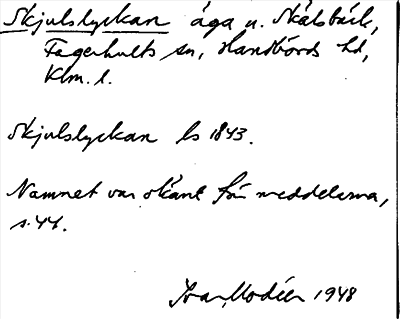 Skjulslyckan äga u. Skälsbäck,
Fagerhults sn, Handbörds hd,
Klm. l.
Skjulslyckan ls 1843.
Namnet var okänt för meddelarna,
s. 44.
Ivar Modéer 1948